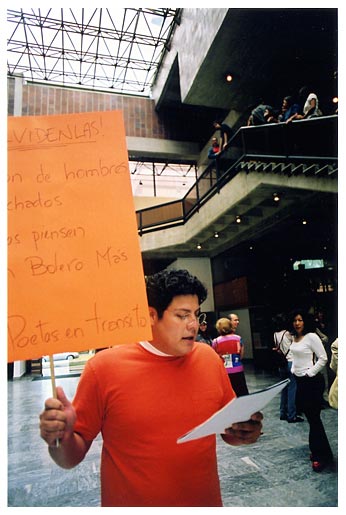 LVIDENLAS!
on de hombres
chados
os piensen
n Bolero Más
Poetas en transito